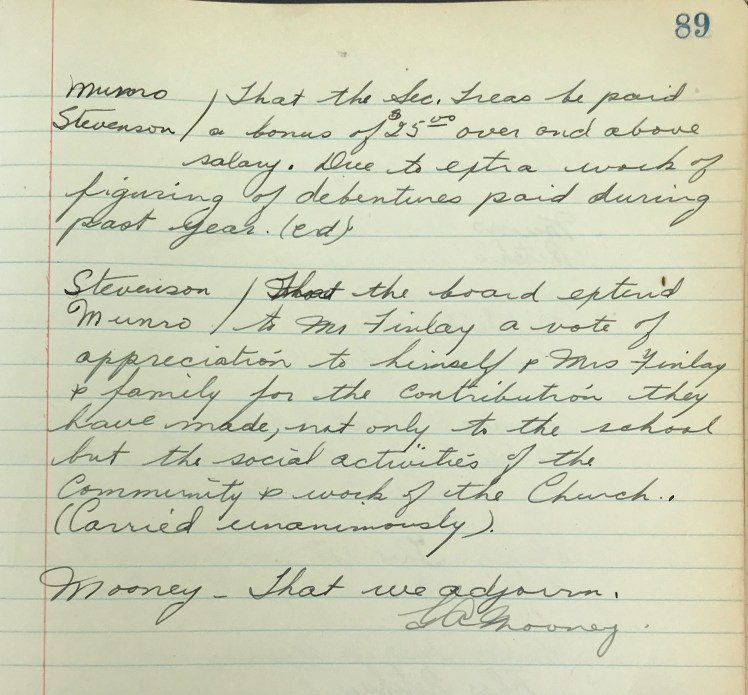 89
Munro / That the Sec. Treas be paid
Stevenson / a bonus of $25.00 over and above
salary. Due to extra work of
figuring of debentures paid during
past year. (cd)
Stevenson / That the board extend
Munro / to Mr Finlay a vote of
appreciation to himself & Mrs Finlay
& family for the contribution they
have made, not only to the school
but the social activities of the
Community & work of the Church..
(Carried unanimously).
Mooney - That we adjourn.
Mooney.